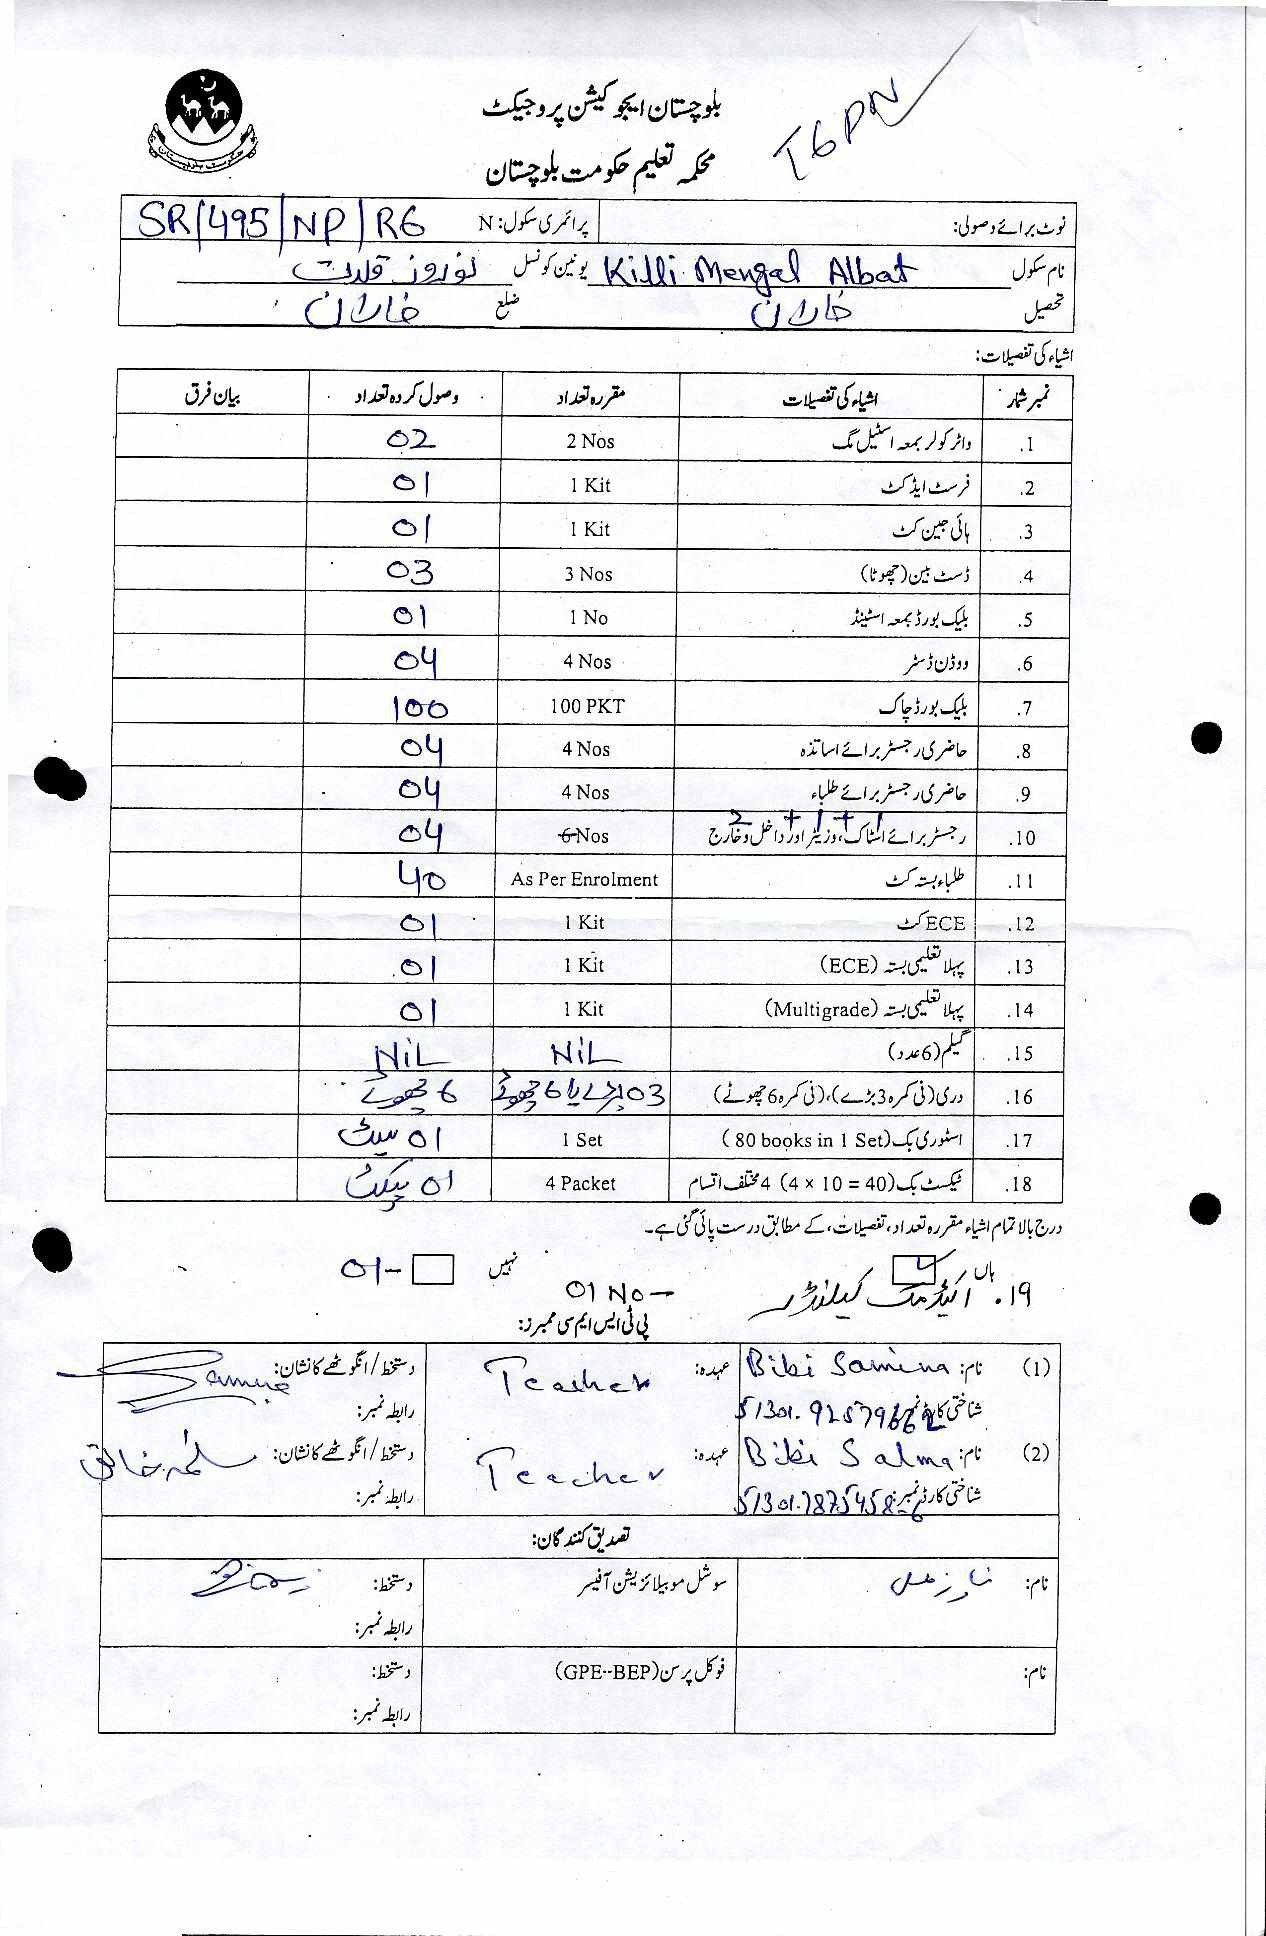 بلوچستان ایجوکیشن پروجیکٹ
TGPN
محکمہ تعلیم حکومت بلوچستان
حکومت بلوچستان
نوٹ برائے وصولی: پرائمری سکول: N SR/495/NP/RG
نام سکول Killi Mengal Albat یونین کونسل نوروز قلات
تحصیل خاران ضلع خاران
اشیاء کی تفصیلات:
نمبر شمار اشیاء کی تفصیلات مقررہ تعداد وصول کردہ تعداد بیان فرق
1. واٹر کولر بمعہ اسٹیل مگ 2 Nos 02
2. فرسٹ ایڈ کٹ 1 Kit 01
3. ہائی جین کٹ 1 Kit 01
4. ڈسٹ بین (چھوٹا) 3 Nos 03
5. بلیک بورڈ بمعہ اسٹینڈ 1 No 01
6. ووڈن ڈسٹر 4 Nos 04
7. بلیک بورڈ چاک 100 PKT 100
8. حاضری رجسٹر برائے اساتذہ 4 Nos 04
9. حاضری رجسٹر برائے طلباء 4 Nos 04
2 + 1 + 1
10. رجسٹر برائے اسٹاک، وزیٹر اور داخل و خارج 6 Nos 04
11. طلباء بستہ کٹ As Per Enrolment 40
12. ECE کٹ 1 Kit 01
13. پہلا تعلیمی بستہ (ECE) 1 Kit 01
14. پہلا تعلیمی بستہ (Multigrade) 1 Kit 01
15. گیلم (6 عدد) NiL NiL
16. دری (فی کمرہ 3 بڑے)، (فی کمرہ 6 چھوٹے) 03 بڑے یا 6 چھوٹے 6 چھوٹے
17. اسٹوری بک (80 books in 1 Set) 1 Set 01 سیٹ
18. ٹیکسٹ بک (4 x 10 = 40) 4 مختلف اقسام 4 Packet 01 پیکٹ
درج بالا تمام اشیاء مقررہ تعداد، تفصیلات، کے مطابق درست پائی گئی ہے۔
ہاں نہیں 01-
19. اکیڈمک کیلنڈر 01 No -
پی ٹی ایس ایم سی ممبرز:
(1) نام: Bibi Samina عہدہ: Teacher دستخط/انگوٹھے کا نشان: Samina
شناختی کارڈ نمبر: رابطہ نمبر:
(2) نام: Bibi Salma عہدہ: Teacher دستخط/انگوٹھے کا نشان: سلمہ خالق
شناختی کارڈ نمبر: رابطہ نمبر:
تصدیق کنندگان:
نام: سوشل موبیلائزیشن آفیسر دستخط:
رابطہ نمبر:
نام: فوکل پرسن (GPE--BEP) دستخط:
رابطہ نمبر: